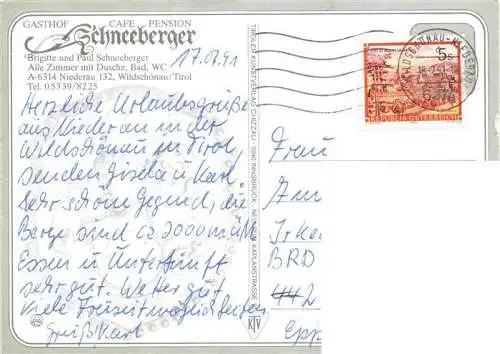 GASTHOF CAFE PENSION
Schneeberger
Brigitte und Paul Schneeberger
Alle Zimmer mit Dusche, Bad, WC
A-6314 Niederau 132, Wildschönau/Tirol
Tel. 05339/8225
17.07.91
Herzliche Urlaubsgrüße
aus Niederau in der
Wildschönau in Tirol,
senden Gisela u Karl
Sehr schöne Gegend, die
Berge sind ca 2000 m ü M
Essen u Unterkunft
sehr gut. Wetter gut
viele Freizeitmöglichkeiten
Gruß Karl
TIROLER KUNSTVERLAG CHIZZALI · 6840 INNSBRUCK, NEURUM KAPLANSTRASSE
KTV
5s
REPUBLIK ÖSTERREICH
Frau
BRD
2
Epp